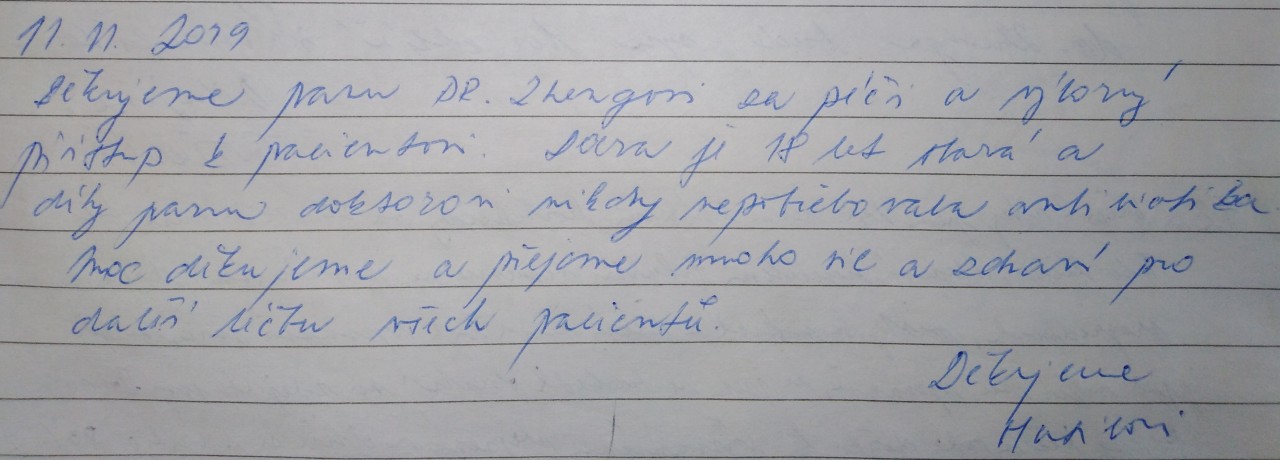 11. 11. 2019
Děkujeme panu DR. Zhengovi za péči a výborný
přístup k pacientovi. Sára je 18 let stará a
díky panu doktorovi nikdy nepotřebovala antibiotika
Moc děkujeme a přejeme mnoho sil a zdraví pro
další léčbu všech pacientů.
Děkujeme